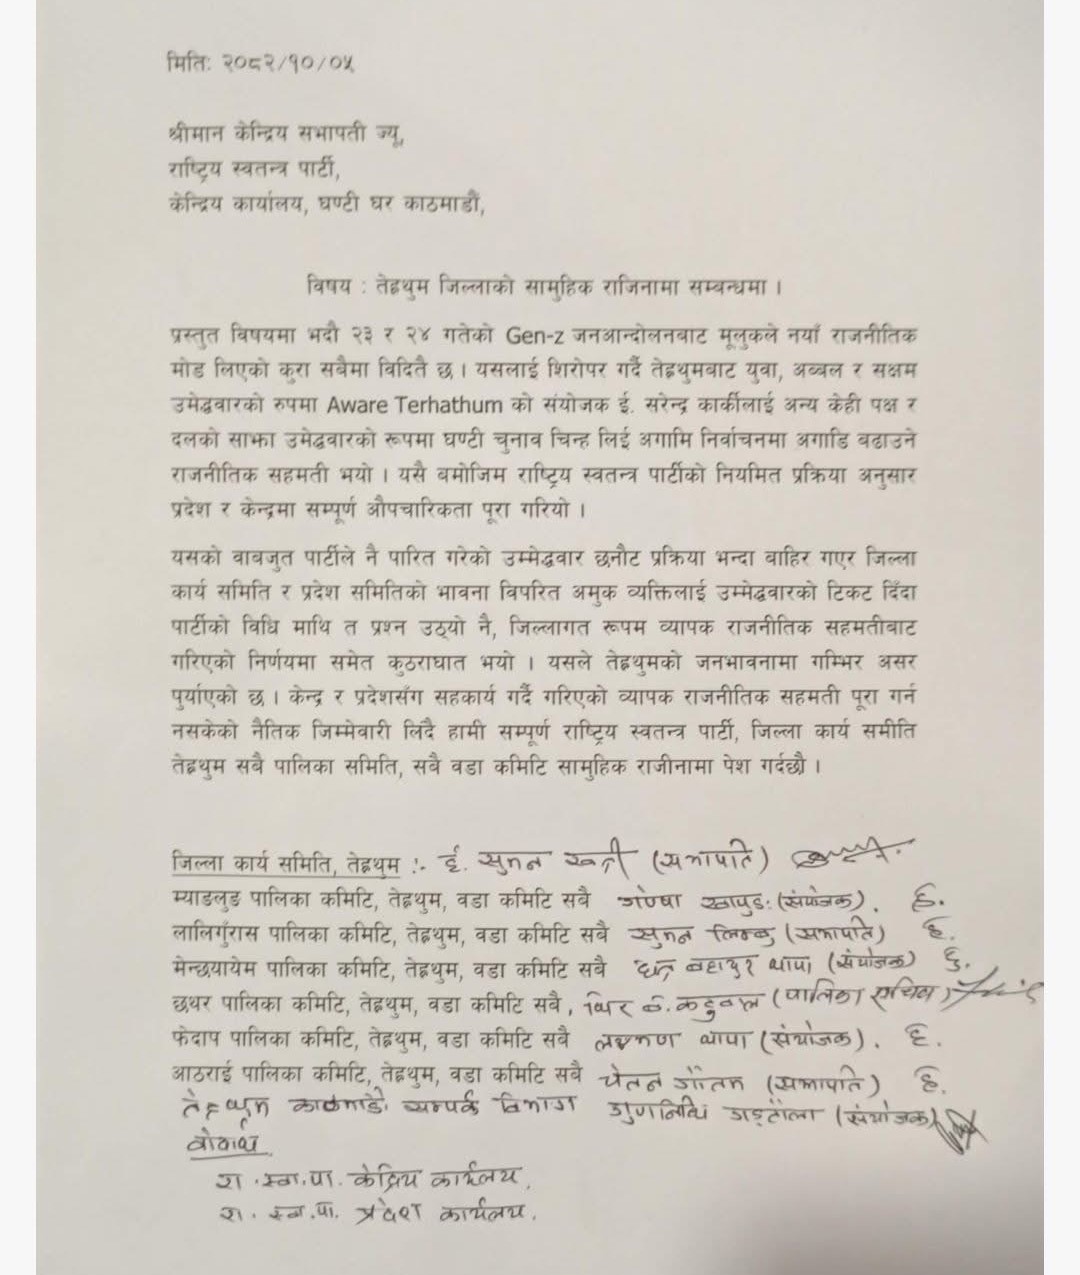 मिति: २०८२/१०/०५
श्रीमान केन्द्रिय सभापती ज्यू,
राष्ट्रिय स्वतन्त्र पार्टी,
केन्द्रिय कार्यालय, घण्टी घर काठमाडौं,
विषय : तेह्रथुम जिल्लाको सामुहिक राजिनामा सम्बन्धमा ।
प्रस्तुत विषयमा भदौ २३ र २४ गतेको Gen-z जनआन्दोलनबाट मूलुकले नयाँ राजनीतिक
मोड लिएको कुरा सबैमा विदितै छ । यसलाई शिरोपर गर्दै तेह्रथुमबाट युवा, अब्बल र सक्षम
उमेद्धवारको रुपमा Aware Terhathum को संयोजक ई. सरेन्द्र कार्कीलाई अन्य केही पक्ष र
दलको साझा उमेद्धवारको रूपमा घण्टी चुनाव चिन्ह लिई अगामि निर्वाचनमा अगाडि बढाउने
राजनीतिक सहमती भयो । यसै बमोजिम राष्ट्रिय स्वतन्त्र पार्टीको नियमित प्रक्रिया अनुसार
प्रदेश र केन्द्रमा सम्पूर्ण औपचारिकता पूरा गरियो ।
यसको वाबजुत पार्टीले नै पारित गरेको उम्मेद्धवार छनौट प्रक्रिया भन्दा बाहिर गएर जिल्ला
कार्य समिति र प्रदेश समितिको भावना विपरित अमुक व्यक्तिलाई उम्मेद्धवारको टिकट दिँदा
पार्टीको विधि माथि त प्रश्न उठ्यो नै, जिल्लागत रूपम व्यापक राजनीतिक सहमतीबाट
गरिएको निर्णयमा समेत कुठराघात भयो । यसले तेह्रथुमको जनभावनामा गम्भिर असर
पुर्याएको छ । केन्द्र र प्रदेशसँग सहकार्य गर्दै गरिएको व्यापक राजनीतिक सहमती पूरा गर्न
नसकेको नैतिक जिम्मेवारी लिदै हामी सम्पूर्ण राष्ट्रिय स्वतन्त्र पार्टी, जिल्ला कार्य समीति
तेह्रथुम सबै पालिका समिति, सबै वडा कमिटि सामुहिक राजीनामा पेश गर्दछौ ।
जिल्ला कार्य समिति, तेह्रथुम :- ई. सुमन खत्री (सभापति)
म्याङलुङ पालिका कमिटि, तेह्रथुम, वडा कमिटि सबै (संयोजक).
लालिगुँरास पालिका कमिटि, तेह्रथुम, वडा कमिटि सबै सुमन लिम्बु (सभापति)
मेन्छयायेम पालिका कमिटि, तेह्रथुम, वडा कमिटि सबै बहादुर थापा (संयोजक)
छथर पालिका कमिटि, तेह्रथुम, वडा कमिटि सबै, (पालिका सचिव)
फेदाप पालिका कमिटि, तेह्रथुम, वडा कमिटि सबै लक्ष्मण थापा (संयोजक).
आठराई पालिका कमिटि, तेह्रथुम, वडा कमिटि सबै चेतन गौतम (सभापति)
तेह्रथुम काठमाडौं सम्पर्क विभाग गुणनिधि (संयोजक)
बोधार्थ
रा. स्व. पा. केंद्रिय कार्यलय.
रा. स्व. पा. प्रदेश कार्यलय.